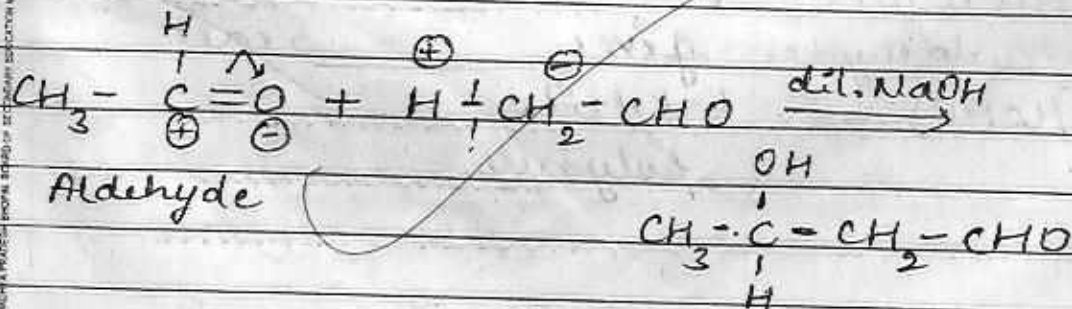 H
CH₃ - C = O + H - CH₂ - CHO dil. NaOH →
⊕ ⊖ ⊕ ⊖
Aldehyde
OH
CH₃ - C - CH₂ - CHO
H